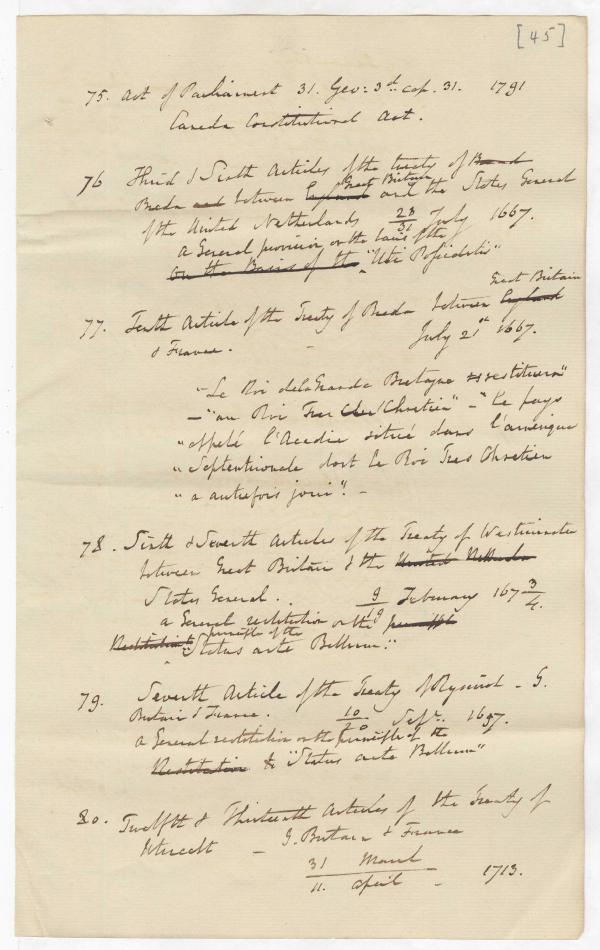 [45]
75. Act of Parliament 31. Geo: 3d. cap. 31. 1791
Canada Constitutional Act.
76 Third & Sixth Articles of the treaty of Bread
Breda and between England Great Britain and the States General
of the United Netherlands 23/31 July 1667.
a General provision on the basis of the
on the Basis of the "Uti Possidetis"
77. Tenth Article of the Treaty of Breda between England Great Britain
& France. - July 21st 1667.
"Le Roi de la Grande Bretagne restituera"
-"au Roi Tres Chretien" - "le pays
"appelé l'Acadie situé dans l'amerique
"Septentrionale dont le Roi Tres Chretien
"a autrefois joui". -
78. Sixth & Seventh Articles of the Treaty of Westminster
between Great Britain & the United Netherlands
States General. 9/19 February 167 3/4.
a General restitution on the principle
Restitution principle of the
"Status ante Bellum".
79. Seventh Article of the Treaty of Ryswick - G.
Britain & France. 10/20 Sepr. 1697.
a General restitution on the principle of the
Restitution & "Status ante Bellum"
80. Twelfth & Thirteenth Articles of the Treaty of
Utrecht - G. Britain & France
31 March
11. April - 1713.